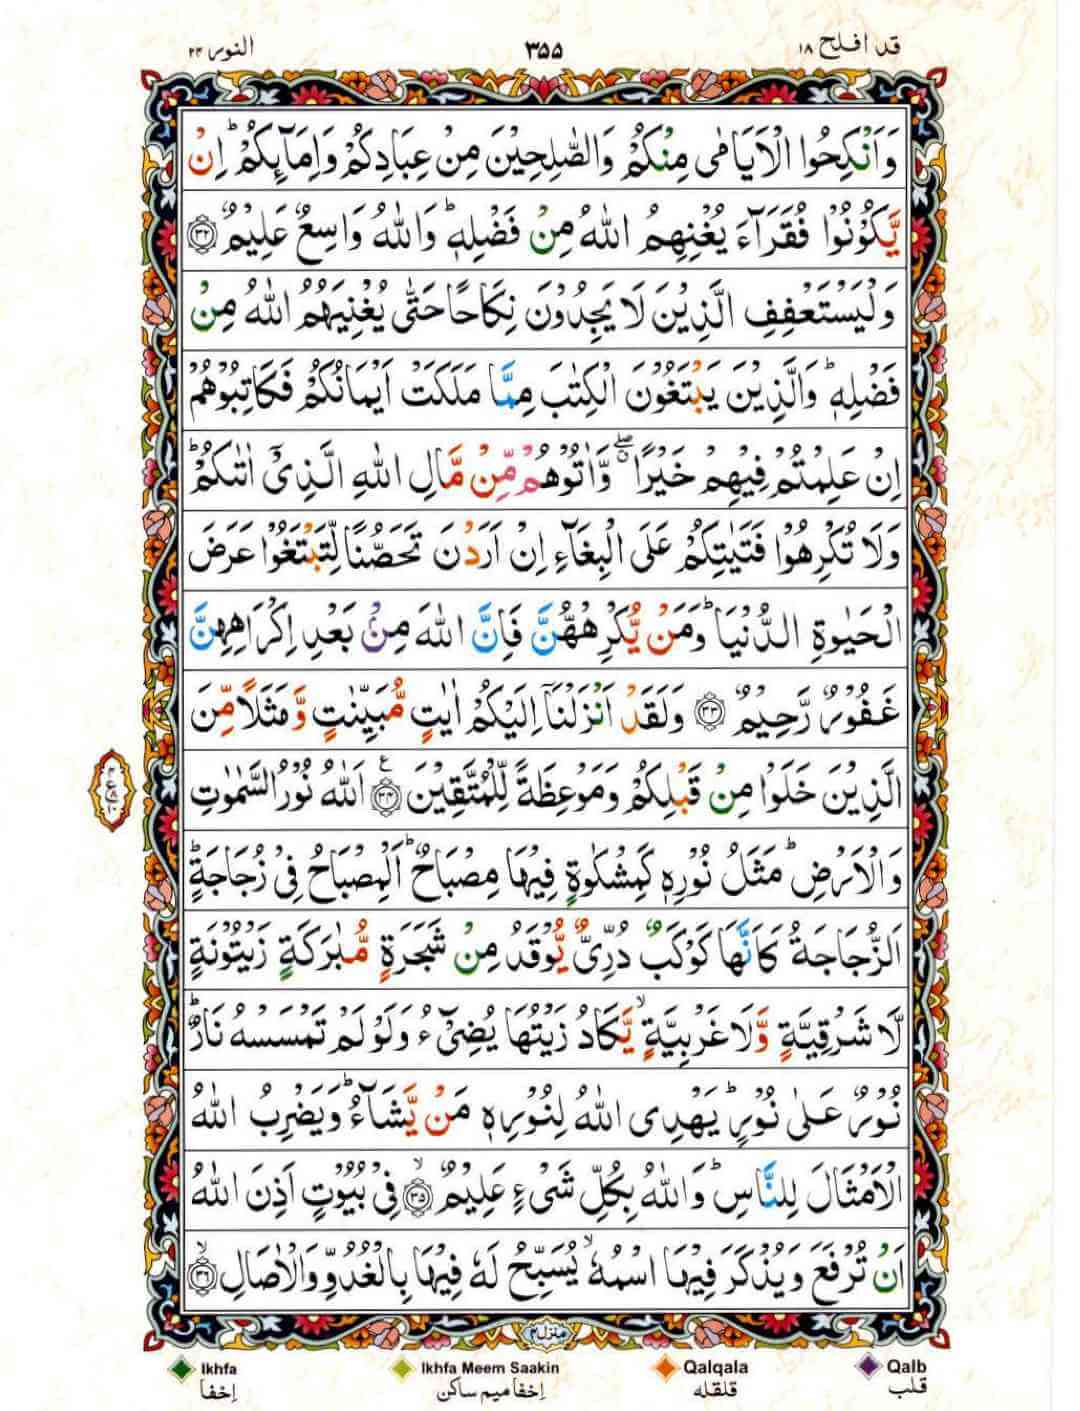 قد افلح ۱۸
۳۵۵
النور ۲۴
وَاَنْكِحُوا الْاَيَامٰى مِنْكُمْ وَالصّٰلِحِيْنَ مِنْ عِبَادِكُمْ وَاِمَآئِكُمْ ؕ اِنْ
يَّكُوْنُوْا فُقَرَآءَ يُغْنِهِمُ اللّٰهُ مِنْ فَضْلِهٖ ؕ وَاللّٰهُ وَاسِعٌ عَلِيْمٌ ۝۳۲
وَلْيَسْتَعْفِفِ الَّذِيْنَ لَا يَجِدُوْنَ نِكَاحًا حَتّٰى يُغْنِيَهُمُ اللّٰهُ مِنْ
فَضْلِهٖ ؕ وَالَّذِيْنَ يَبْتَغُوْنَ الْكِتٰبَ مِمَّا مَلَكَتْ اَيْمَانُكُمْ فَكَاتِبُوْهُمْ
اِنْ عَلِمْتُمْ فِيْهِمْ خَيْرًا ۖ وَّاٰتُوْهُمْ مِّنْ مَّالِ اللّٰهِ الَّذِىْٓ اٰتٰىكُمْ ؕ
وَلَا تُكْرِهُوْا فَتَيٰتِكُمْ عَلَى الْبِغَآءِ اِنْ اَرَدْنَ تَحَصُّنًا لِّتَبْتَغُوْا عَرَضَ
الْحَيٰوةِ الدُّنْيَا ؕ وَمَنْ يُّكْرِهْهُّنَّ فَاِنَّ اللّٰهَ مِنْۢ بَعْدِ اِكْرَاهِهِنَّ
غَفُوْرٌ رَّحِيْمٌ ۝۳۳ وَلَقَدْ اَنْزَلْنَآ اِلَيْكُمْ اٰيٰتٍ مُّبَيِّنٰتٍ وَّمَثَلًا مِّنَ
الَّذِيْنَ خَلَوْا مِنْ قَبْلِكُمْ وَمَوْعِظَةً لِّلْمُتَّقِيْنَ ۝۳۴ ع اَللّٰهُ نُوْرُ السَّمٰوٰتِ
وَالْاَرْضِ ؕ مَثَلُ نُوْرِهٖ كَمِشْكٰوةٍ فِيْهَا مِصْبَاحٌ ؕ اَلْمِصْبَاحُ فِىْ زُجَاجَةٍ ؕ
اَلزُّجَاجَةُ كَاَنَّهَا كَوْكَبٌ دُرِّىٌّ يُّوْقَدُ مِنْ شَجَرَةٍ مُّبٰرَكَةٍ زَيْتُوْنَةٍ
لَّا شَرْقِيَّةٍ وَّلَا غَرْبِيَّةٍ ۙ يَّكَادُ زَيْتُهَا يُضِىْٓءُ وَلَوْ لَمْ تَمْسَسْهُ نَارٌ ؕ
نُوْرٌ عَلٰى نُوْرٍ ؕ يَهْدِى اللّٰهُ لِنُوْرِهٖ مَنْ يَّشَآءُ ؕ وَيَضْرِبُ اللّٰهُ
الْاَمْثَالَ لِلنَّاسِ ؕ وَاللّٰهُ بِكُلِّ شَىْءٍ عَلِيْمٌ ۙ ۝۳۵ فِىْ بُيُوْتٍ اَذِنَ اللّٰهُ
اَنْ تُرْفَعَ وَيُذْكَرَ فِيْهَا اسْمُهٗ ۙ يُسَبِّحُ لَهٗ فِيْهَا بِالْغُدُوِّ وَالْاٰصَالِ ۙ ۝۳۶
منزل ۴
Ikhfa
Ikhfa Meem Saakin
Qalqala
Qalb
اخفا
اخفا ميم ساكن
قلقله
قلب